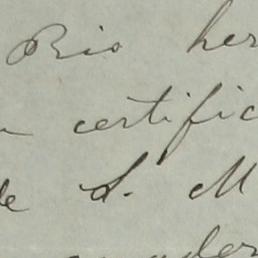 Rio her
certific
de S. M